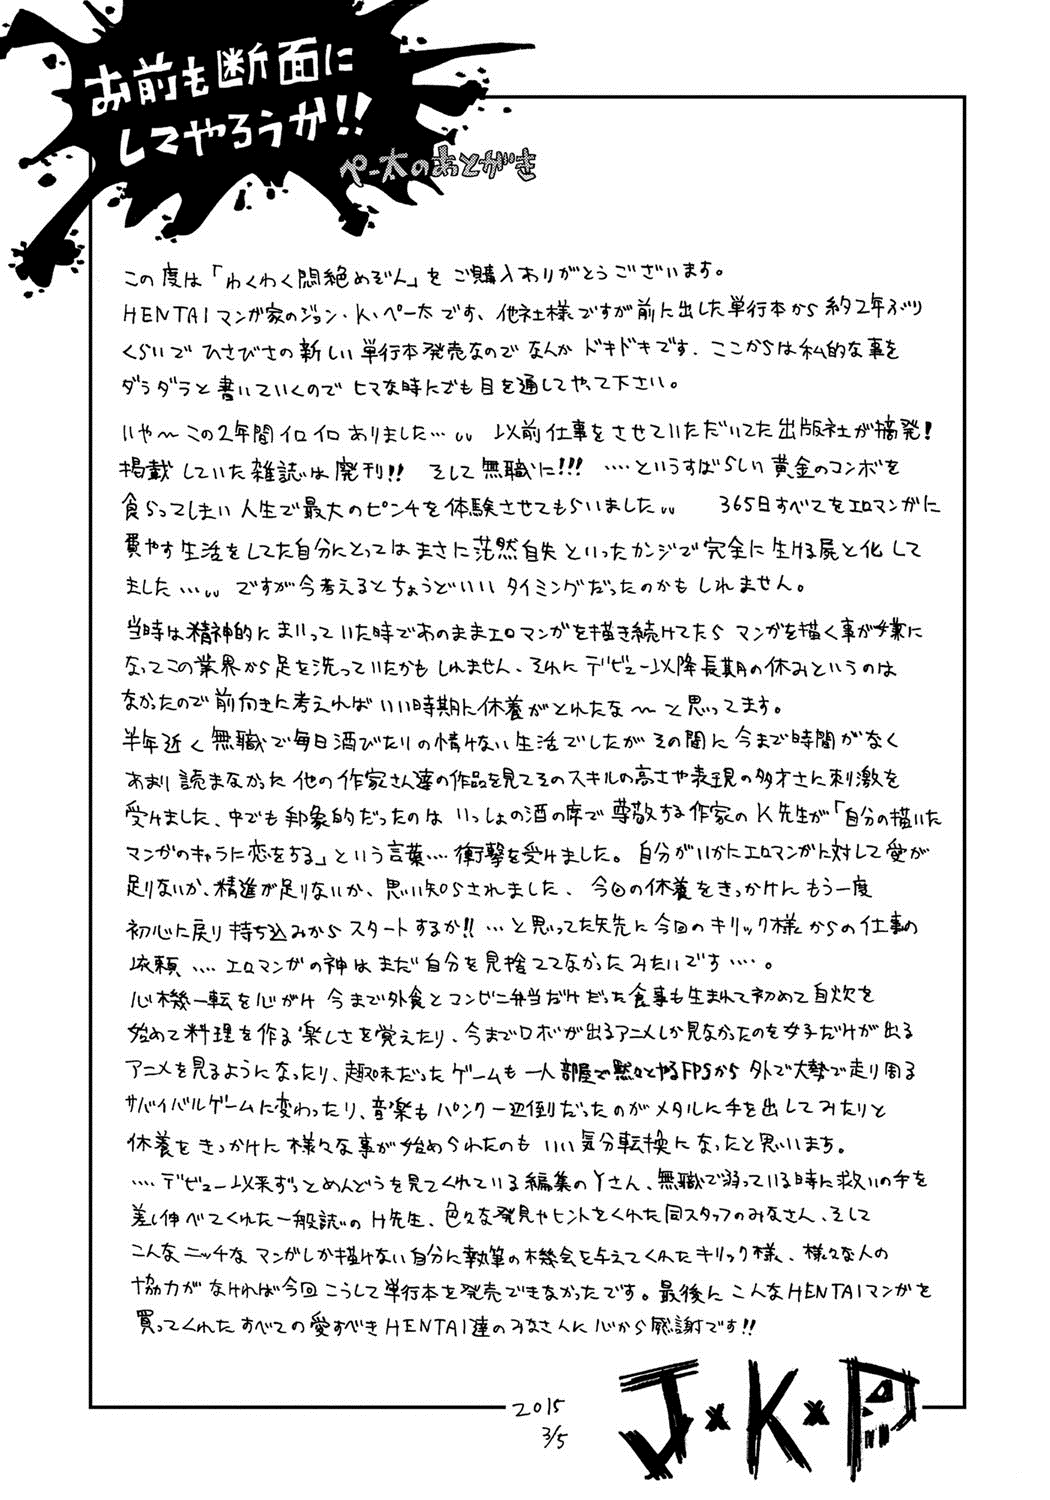 お前も断面に
してやろうか!!
ぺー太のあとがき
この度は「わくわく悶絶めぞん」をご購入ありがとうございます。
HENTAIマンガ家のジョン・K・ペー太です、他社様ですが前に出した単行本から約2年ぶり
くらいでひさびさの新しい単行本発売なのでなんかドキドキです.ここからは私的な事を
ダラダラと書いていくのでヒマな時にでも目を通してやって下さい。
いや〜この2年間イロイロありました…。。 以前仕事をさせていただいてた出版社が摘発!
掲載していた雑誌は廃刊!! そして無職に!!! ‥‥というすばらしい黄金のコンボを
食らってしまい人生で最大のピンチを体験させてもらいました。。 365日すべてをエロマンガに
費やす生活をしてた自分にとってはまさに茫然自失といったカンジで完全に生ける屍と化して
ました…。。ですが今考えるとちょうどいいタイミングだったのかもしれません。
当時は精神的にまいっていた時であのままエロマンガを描き続けてたらマンガを描く事が嫌に
なってこの業界から足を洗っていたかもしれません、それにデビュー以降長期の休みというのは
なかったので前向きに考えればいい時期に休養がとれたな〜と思ってます。
半年近く無職で毎日酒びたりの情けない生活でしたがその間に今まで時間がなく
あまり読まなかった他の作家さん達の作品を見てそのスキルの高さや表現の多才さに刺激を
受けました、中でも印象的だったのはいっしょの酒の席で尊敬する作家のK先生が「自分の描いた
マンガのキャラに恋をする」という言葉‥‥衝撃を受けました。自分がいかにエロマンガに対して愛が
足りないか、精進が足りないか、思い知らされました、今回の休養をきっかけにもう一度
初心に戻り持ち込みからスタートするか!! …と思ってた矢先に今回のキリック様からの仕事の
依頼‥‥エロマンガの神はまだ自分を見捨ててなかったみたいです‥‥。
心機一転を心がけ今まで外食とコンビニ弁当だけだった食事も生まれて初めて自炊を
始めて料理を作る楽しさを覚えたり、今までロボが出るアニメしか見なかったのを女子だけが出る
アニメを見るようになったり、趣味だったゲームも一人部屋で黙々とやるFPSから外で大勢で走り周る
サバイバルゲームに変わったり、音楽もパンク一辺倒だったのがメタルに手を出してみたりと
休養をきっかけに様々な事が始められたのもいい気分転換になったと思います。
‥‥デビュー以来ずっとめんどうを見てくれている編集のYさん、無職で弱っている時に救いの手を
差し伸べてくれた一般誌のH先生、色々な発見やヒントをくれた同スタッフのみなさん、そして
こんなニッチなマンガしか描けない自分に執筆の機会を与えてくれたキリック様、様々な人の
協力がなければ今回こうして単行本を発売できなかったです。最後にこんなHENTAIマンガを
買ってくれたすべての愛すべきHENTAI達のみなさんに心から感謝です!!
2015
3/5
J×K×P